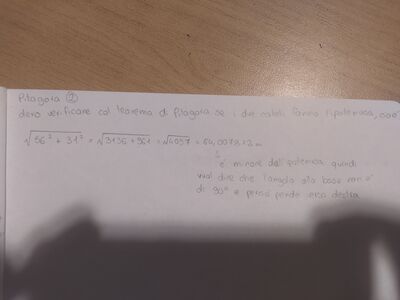 Pitagora ②
devo verificare col teorema di Pitagora se i due cateti fanno l'ipotenusa, cioè
√56² + 31² = √3136 + 961 = √4097 = 64,007812 m
è minore dell'ipotenusa quindi
vuol dire che l'angolo alla base non è
di 90° e perciò pende verso destra